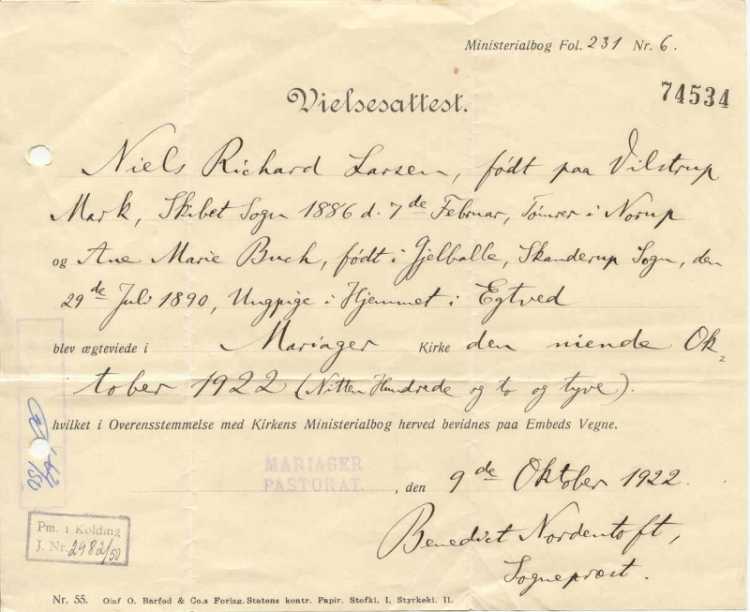 Ministerialbog Fol. 231 Nr. 6.
74534
Vielsesattest.
Niels Richard Larsen, født paa Vilstrup
Mark, Skibet Sogn 1886 d. 7de Februar, Tømrer i Norup
og Ane Marie Buch, født i Gjelballe, Skanderup Sogn, den
29de Juli 1890, Ungpige i Hjemmet i Egtved
blev ægteviede i Mariager Kirke den niende Ok-
tober 1922 (Nitten Hundrede og to og tyve).
hvilket i Overensstemmelse med Kirkens Ministerialbog herved bevidnes paa Embeds Vegne.
MARIAGER
PASTORAT. , den 9de Oktober 1922.
Benedict Nordentoft,
Sognepræst.
Pm. i Kolding
J. Nr. 2982/50
Nr. 55. Olaf O. Barfod & Co.s Forlag. Statens kontr. Papir. Stofkl. I, Styrkekl. II.